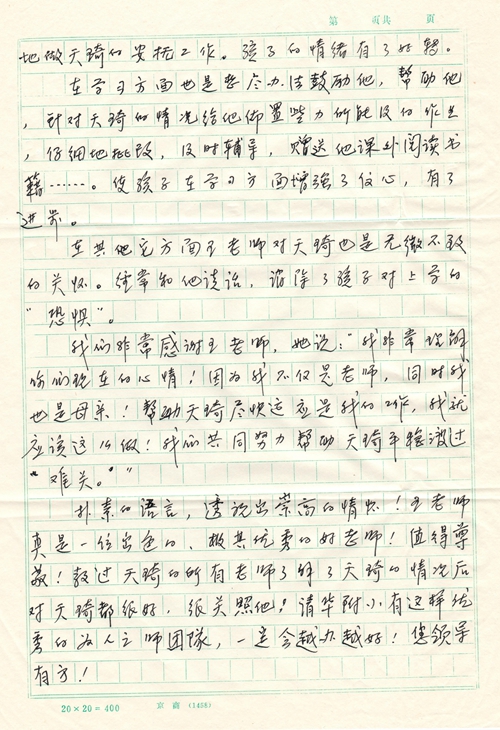 第 页共 页
地做天琦的安抚工作。孩子的情绪有了好转。
在学习方面也是想尽办法鼓励他,帮助他
,针对天琦的情况给他佈置些力所能及的作业
,仔细地批改,及时辅导,赠送他课外阅读书
籍……。使孩子在学习方面增强了信心,有了
进步。
在其他各方面王老师对天琦也是无微不致
的关怀。经常和他谈话,消除了孩子对上学的
"恐惧"。
我们非常感谢王老师,她说:"我非常理解
你们现在的心情!因为我不仅是老师,同时我
也是母亲!帮助天琦尽快适应是我的工作,我就
应该这么做!我们共同努力帮助天琦平稳渡过
"难关。""
朴素的语言,透说出崇高的情怀!王老师
真是一位出色的、极其优秀的好老师!值得尊
敬!教过天琦的所有老师了解了天琦的情况后
对天琦都很好,很关照他!清华附小有这样优
秀的为人之师团隊,一定会越办越好!您领导
有方!
20×20=400 京 (1458)